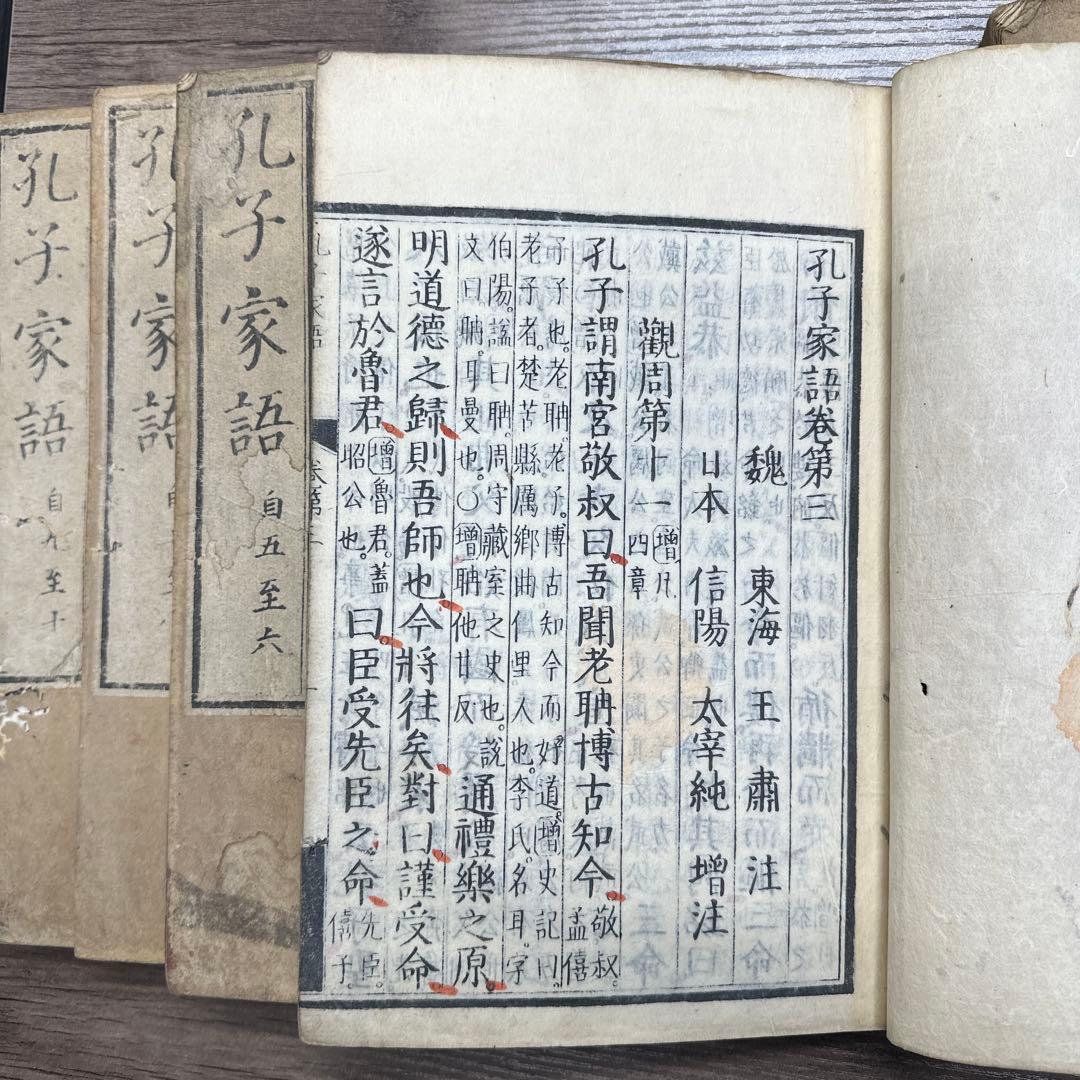 孔子家語卷第三
魏 東海 王肅 注
日本 信陽 太宰純 增注
觀周第十一 增凡四章
孔子謂南宮敬叔曰。吾聞老聃博古知今。敬叔。孟僖
子子也。老聃。老子。博古知今而好道。增史記曰。
老子者。楚苦縣厲鄉曲仁里人也。李氏。名耳。字
伯陽。諡曰聃。周守藏室之史也。說
文曰。聃。耳曼也。○增聃他甘反
通禮樂之原。
明道德之歸。則吾師也。今將往矣。對曰。謹受命。
遂言於魯君。增魯君。蓋昭公也。曰。臣受先臣之命。先臣。僖子。
孔子家語
卷第三
一
孔子家語 自五至六
孔子家語 自
孔子家語 自九至十